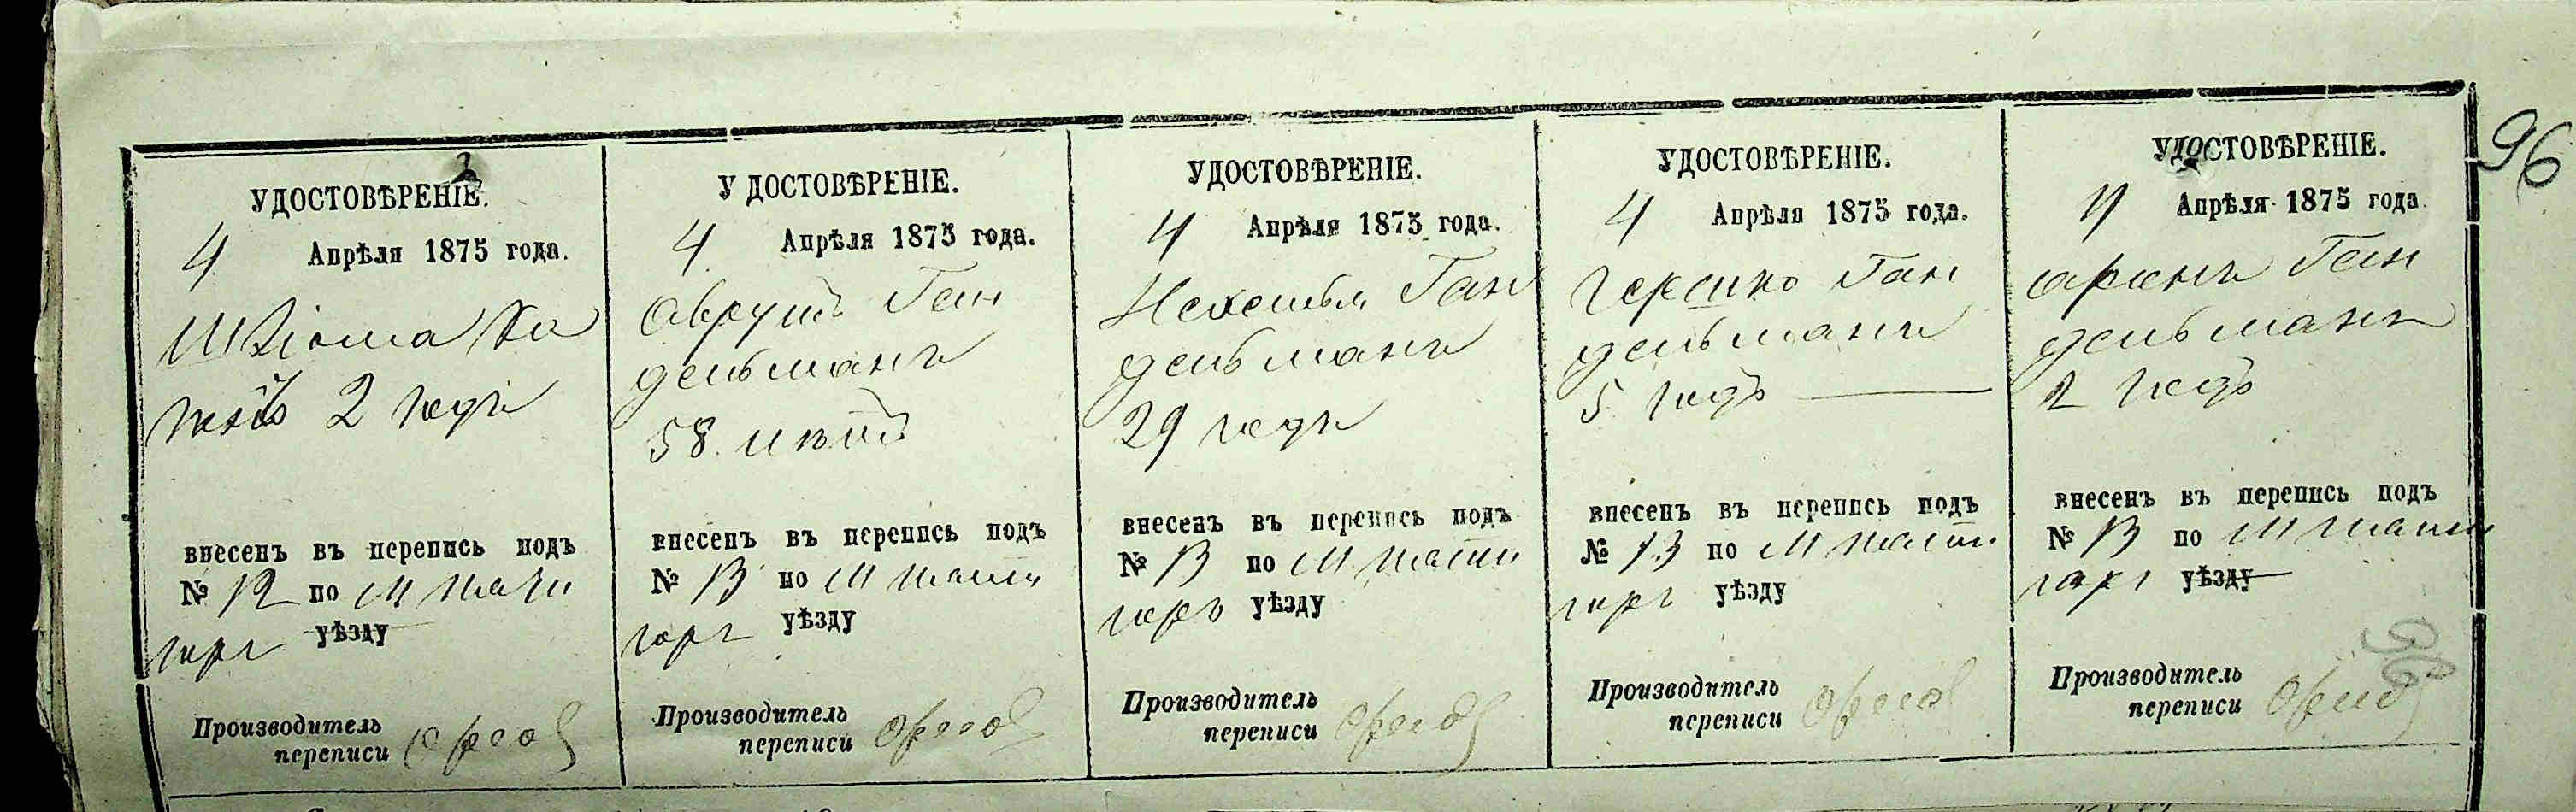 96
УДОСТОВѢРЕНІЕ.
4 Апрѣля 1875 года.
Шліома Ка
2 годъ
внесенъ въ перепись подъ
№ 12 по М
горг уѣзду
Производитель
переписи
У ДОСТОВѢРЕНІЕ.
4 Апрѣля 1875 года.
Аврумъ Ген
дельманъ
58. лѣтъ
внесенъ въ перепись подъ
№ 13 по М
горг уѣзду
Производитель
переписи
УДОСТОВѢРЕНІЕ.
4 Апрѣля 1875 года.
Нехемья Ген
дельманъ
29 годъ
внесенъ въ перепись подъ
№ 13 по М
уѣзду
Производитель
переписи
УДОСТОВѢРЕНІЕ.
4 Апрѣля 1875 года.
Гершко Ген
дельманъ
5 годъ
внесенъ въ перепись подъ
№ 13 по М
горг уѣзду
Производитель
переписи
УДОСТОВѢРЕНІЕ.
4 Апрѣля 1875 года.
Аронъ Ген
дельманъ
2 годъ
внесенъ въ перепись подъ
№ 13 по М
горг уѣзду
96
Производитель
переписи